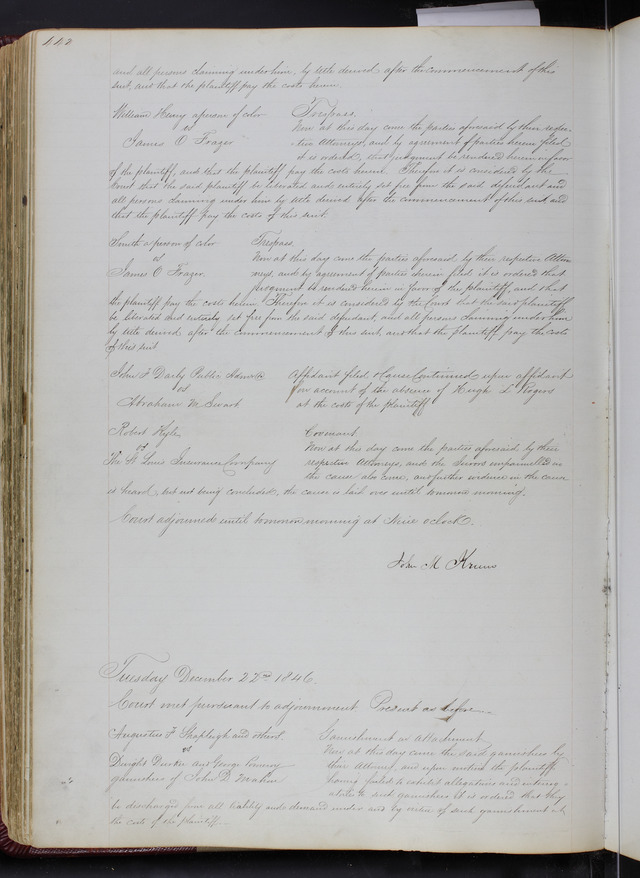 442
and all persons claiming under him, by title derived after the commencement of this
suit, and that the plaintiff pay the costs herein.
William Henry a person of color
vs
James O Frazer
Trespass.
Now at this day come the parties aforesaid by their respec-
tive Attorneys, and by agreement of parties herein filed
it is ordered, that judgment be rendered herein in favor
of the plaintiff, and that the plaintiff pay the costs herein. Therefore it is considered by the
Court that the said plaintiff be liberated and entirely set free from the said defendant and
all persons claiming under him by title derived after the commencement of this suit and
that the plaintiff pay the costs of this suit.
Smith a person of color
vs
James O Frazer.
Trespass
Now at this day come the parties aforesaid by their respective Attor-
neys, and by agreement of parties herein filed it is ordered that
judgment be rendered herein in favor of the plaintiff, and that
the plaintiff pay the costs herein. Therefore it is considered by the Court that the said plaintiff
be liberated and entirely set free from the said defendant, and all persons claiming under him
by title derived after the commencement of this suit, and that the plaintiff pay the costs
of this suit
John F Darby Public
vs
Abraham M
Affidavit filed & Cause Continued upon affidavit
on account of the absence of Hugh L Rogers
at the costs of the plaintiff
Robert Kyle
vs
The St Louis Insurance Company
Covenant
Now at this day come the parties aforesaid by their
respective Attorneys, and the Jurors empannelled in
the cause also come, and further evidence in the cause
is heard, but not being concluded, the cause is laid over until tomorrow morning.
Court adjourned until tomorrow morning at Nine oclock.
John M Krum
Tuesday December 22nd 1846.
Court met pursuant to adjournment Present as before
Augustus F Shapleigh and others
vs
Dwight Durkee and George
garnishees of John D
Garnishment on Attachment
Now at this day came the said garnishees by
their Attorney, and upon motion the plaintiff
having failed to exhibit allegations and
to such garnishees it is ordered that they
be discharged from all liability and demand under and by virtue of such garnishment at
the costs of the plaintiff.